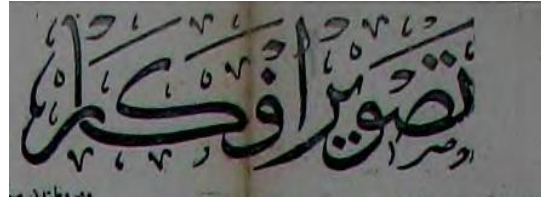 تصوير افكار